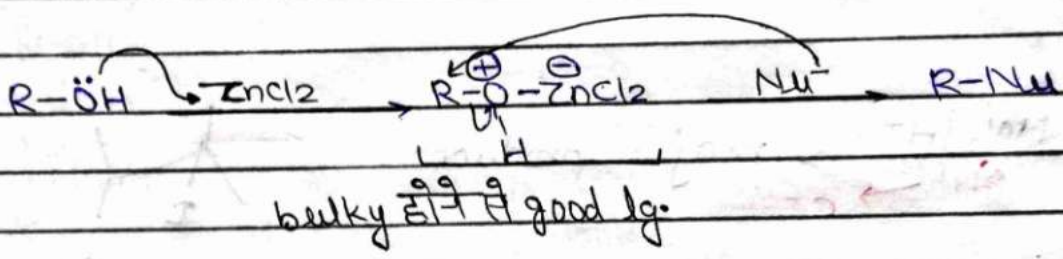 R–ÖH ZnCl2 → R–O⊕–ZnCl2⊖ Nu⁻ → R–Nu
H
bulky होने से good lg.